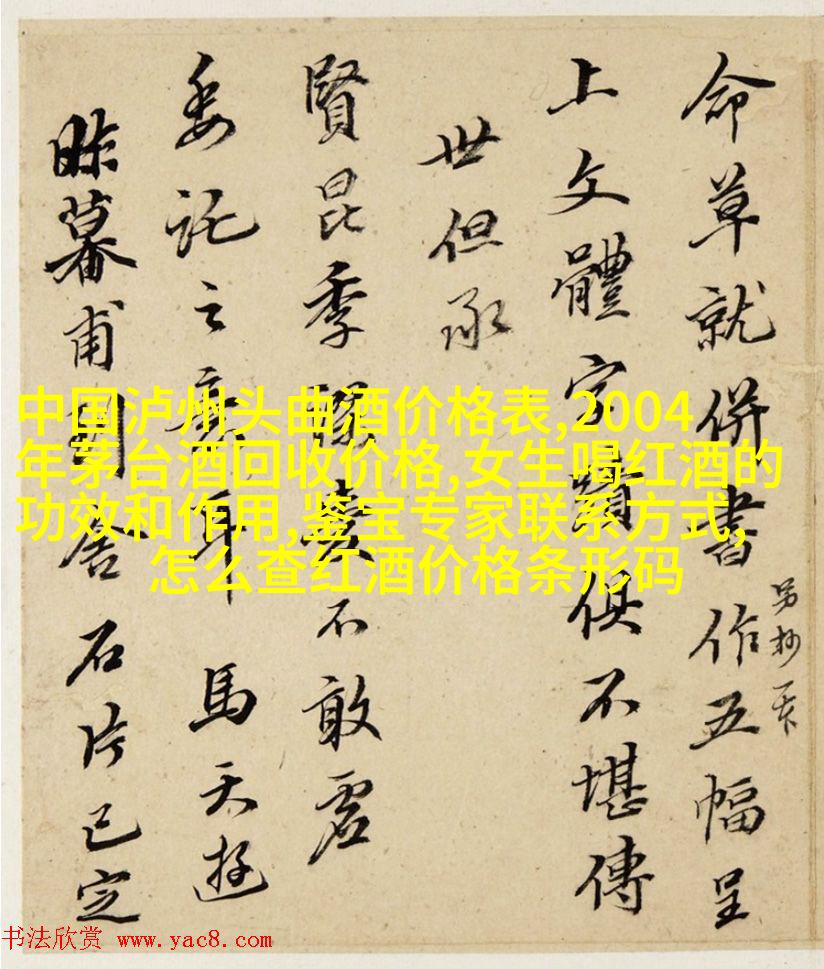 命草就併書作五幅呈
另抄
上文體字俱不堪傳
世但承
賢昆季不敢虛
委託之耳 馬天游
昨暮甫到舍石片已定
中国泸州头曲酒价格表,2004
年茅台酒回收价格,女生喝红酒的
功效和作用,鉴宝专家联系方式,
怎么查红酒价格条形码
书法欣赏 www.yac8.com